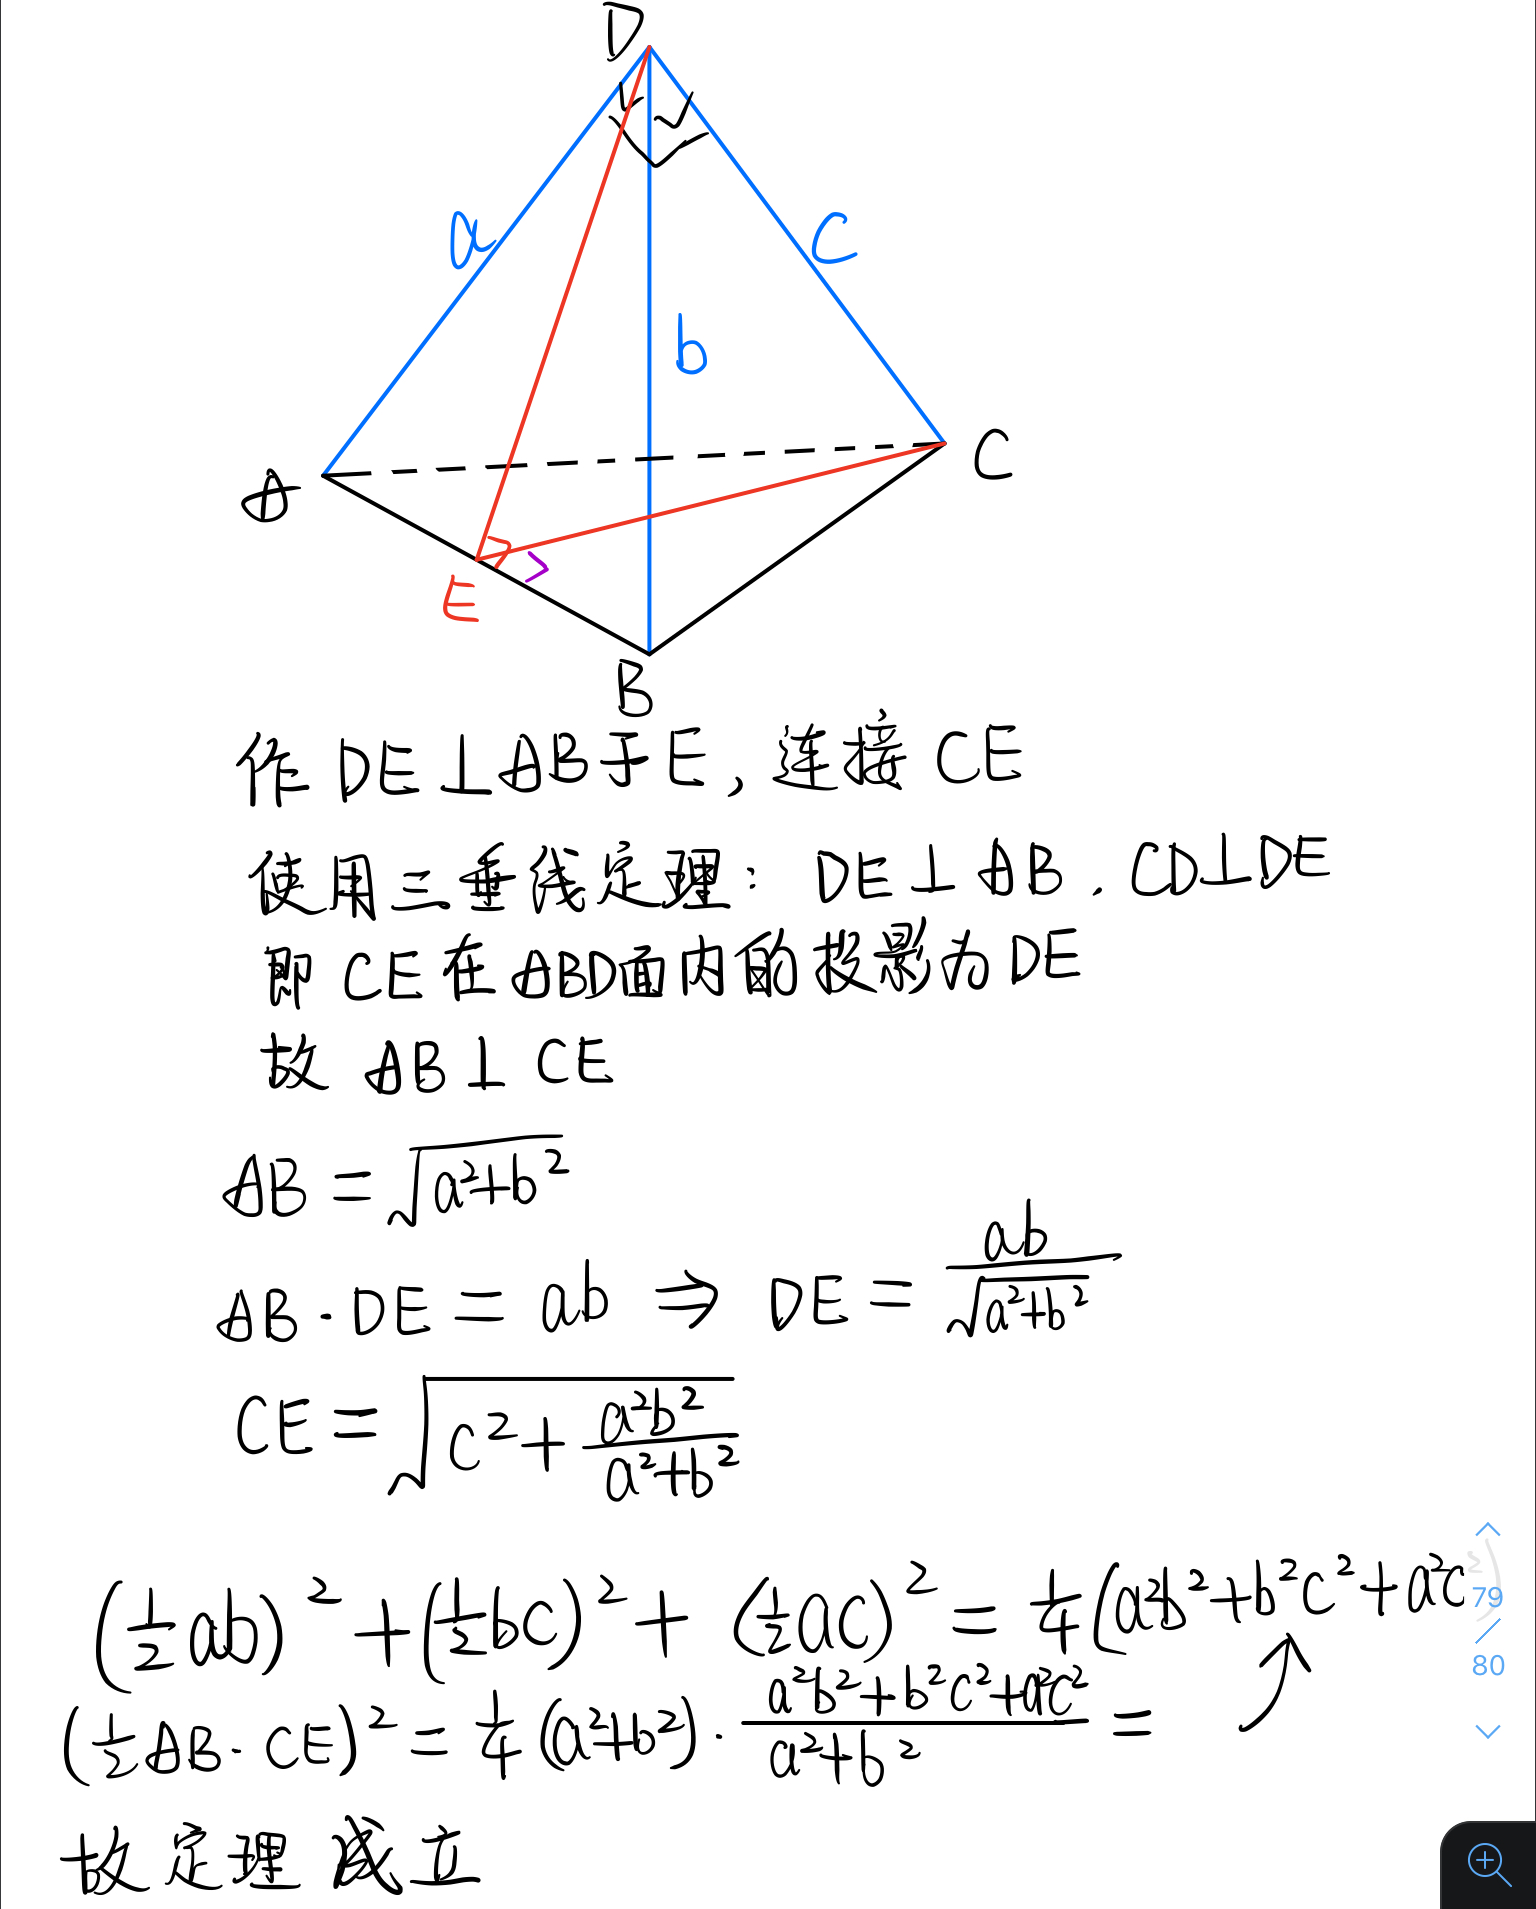 D
a
c
b
A
C
E
B
作 DE⊥AB于E, 连接 CE
使用三垂线定理: DE⊥AB. CD⊥DE
即 CE在ABD面内的投影为DE
故 AB⊥CE
AB = √(a²+b²)
AB·DE = ab ⇒ DE = ab/√(a²+b²)
CE = √(c² + a²b²/(a²+b²))
(½ab)² + (½bc)² + (½ac)² = ¼(a²b²+b²c²+a²c²)
(½AB·CE)² = ¼(a²+b²)·(a²b²+b²c²+a²c²)/(a²+b²) = ↗
故定理成立
79
/
80